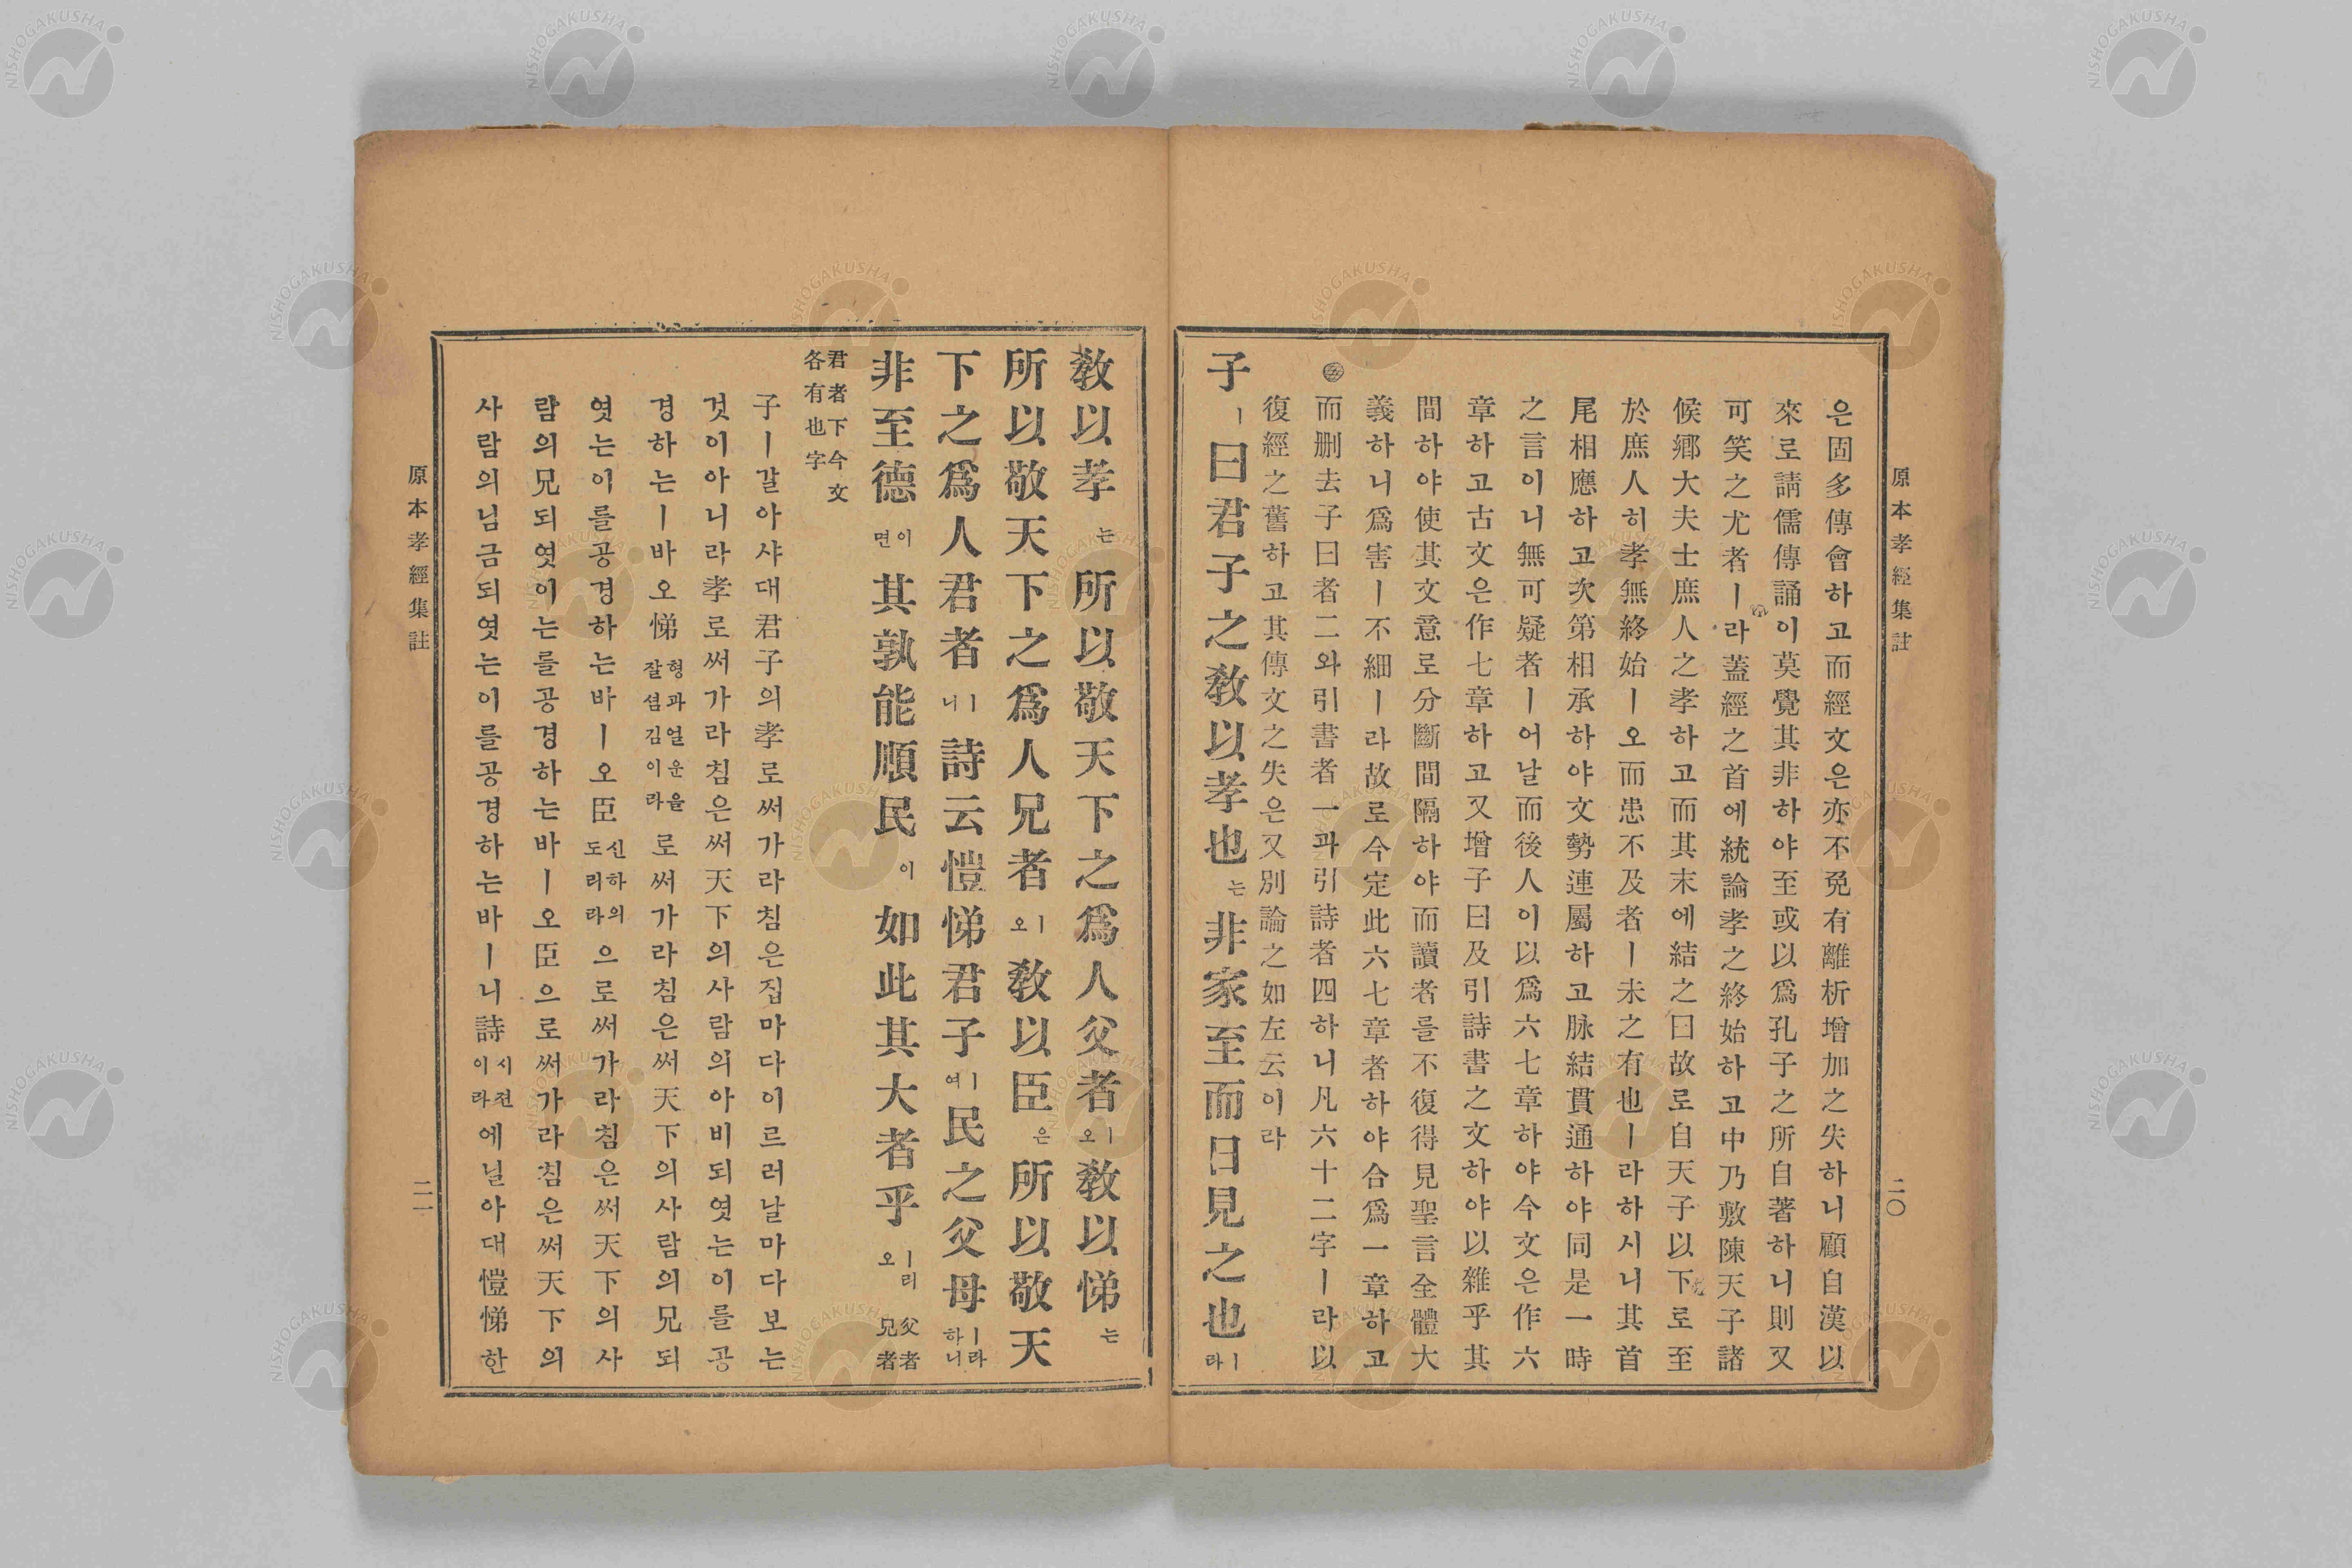 原本孝經集註
二〇
은固多傳會하고而經文은亦不免有離析增加之失하니顧自漢以
來로諸儒傳誦이莫覺其非하야至或以爲孔子之所自著하니則又
可笑之尤者ㅣ라蓋經之首에統論孝之終始하고中乃敷陳天子諸
候鄕大夫士庶人之孝하고而其末에結之曰故로自天子以下로至
於庶人히孝無終始ㅣ오而患不及者ㅣ未之有也ㅣ라하시니其首
尾相應하고次第相承하야文勢連屬하고脉結貫通하야同是一時
之言이니無可疑者ㅣ어날而後人이以爲六七章하야今文은作六
章하고古文은作七章하고又增子曰及引詩書之文하야以雜乎其
間하야使其文意로分斷間隔하야而讀者를不復得見聖言全體大
義하니爲害ㅣ不細ㅣ라故로今定此六七章者하야合爲一章하고
而刪去子曰者二와引書者一과引詩者四하니凡六十二字ㅣ라以
復經之舊하고其傳文之失은又別論之如左云이라
五
子ㅣ曰君子之敎以孝也는非家至而日見之也ㅣ라
敎以孝는所以敬天下之爲人父者ㅣ오敎以悌는
所以敬天下之爲人兄者ㅣ오敎以臣은所以敬天
下之爲人君者ㅣ니詩云愷悌君子ㅣ여民之父母ㅣ라하니
非至德이면其孰能順民이如此其大者乎ㅣ리오父者兄者
君者下今文各有也字
子ㅣ갈아샤대君子의孝로써가라침은집마다이르러날마다보는
것이아니라孝로써가라침은써天下의사람의아비되엿는이를공
경하는ㅣ바오悌형과얼운을잘섬김이라로써가라침은써天下의사람의兄되
엿는이를공경하는바ㅣ오臣신하의도리라으로써가라침은써天下의사
람의兄되엿이는를공경하는바ㅣ오臣으로써가라침은써天下의
사람의님금되엿는이를공경하는바ㅣ니詩시전이라에닐아대愷悌한
原本孝經集註
二一
NISHOGAKUSHA